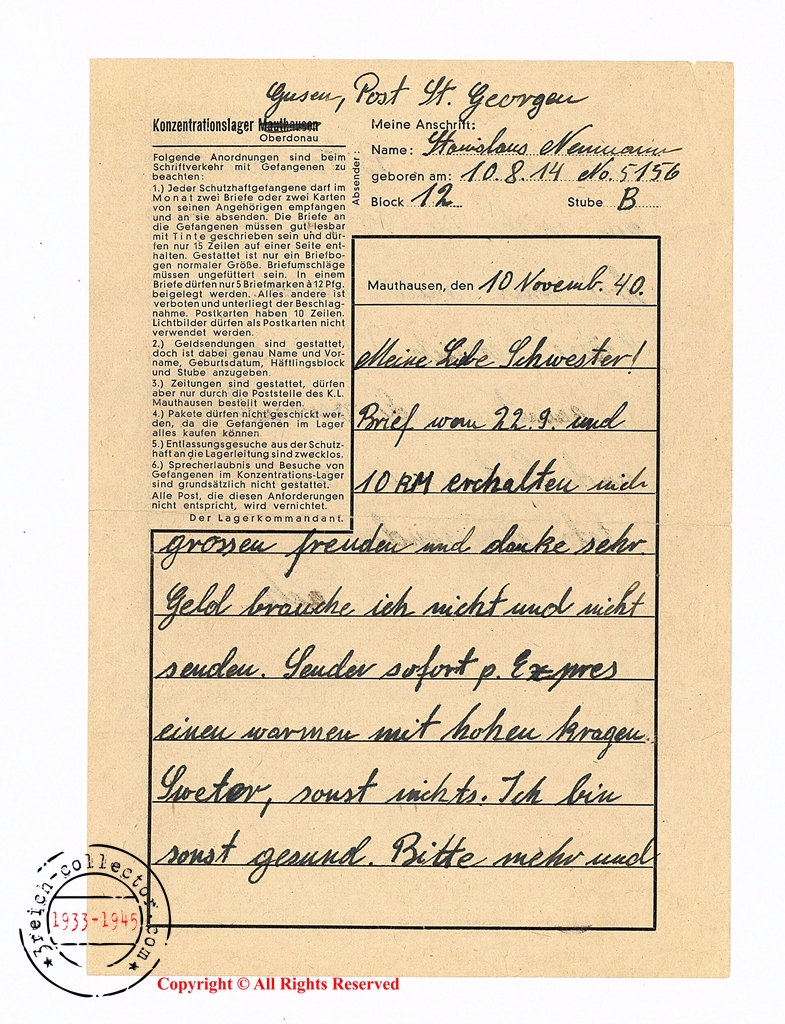 Gusen, Post St. Georgen
Konzentrationslager Mauthausen
Oberdonau
Folgende Anordnungen sind beim
Schriftverkehr mit Gefangenen zu
beachten:
1.) Jeder Schutzhaftgefangene darf im
Monat zwei Briefe oder zwei Karten
von seinen Angehörigen empfangen
und an sie absenden. Die Briefe an
die Gefangenen müssen gut lesbar
mit Tinte geschrieben sein und dür-
fen nur 15 Zeilen auf einer Seite ent-
halten. Gestattet ist nur ein Briefbo-
gen normaler Größe. Briefumschläge
müssen ungefüttert sein. In einem
Briefe dürfen nur 5 Briefmarken à 12 Pfg.
beigelegt werden. Alles andere ist
verboten und unterliegt der Beschlag-
nahme. Postkarten haben 10 Zeilen.
Lichtbilder dürfen als Postkarten nicht
verwendet werden.
2.) Geldsendungen sind gestattet,
doch ist dabei genau Name und Vor-
name, Geburtsdatum, Häftlingsblock
und Stube anzugeben.
3.) Zeitungen sind gestattet, dürfen
aber nur durch die Poststelle des K.L.
Mauthausen bestellt werden.
4.) Pakete dürfen nicht geschickt wer-
den, da die Gefangenen im Lager
alles kaufen können.
5.) Entlassungsgesuche aus der Schutz-
haft an die Lagerleitung sind zwecklos.
6.) Sprecherlaubnis und Besuche von
Gefangenen im Konzentrations-Lager
sind grundsätzlich nicht gestattet.
Alle Post, die diesen Anforderungen
nicht entspricht, wird vernichtet.
Der Lagerkommandant.
Absender:
Meine Anschrift:
Name: Stanislaus Neumann
geboren am: 10.8.14 No. 5156
Block 12 Stube B
Mauthausen, den 10 Novemb. 40.
Meine Libe Schwester!
Brief wom 22.9. und
10 RM erchalten mich
grossen freuden und danke sehr.
Geld brauche ich nicht und nicht
senden. Sender sofort p. Expres
einen warmen mit hohen kragen
Sweter, sonst nichts. Ich bin
sonst gesund. Bitte mehr und
3reich-collector.com
1933-1945
Copyright © All Rights Reserved